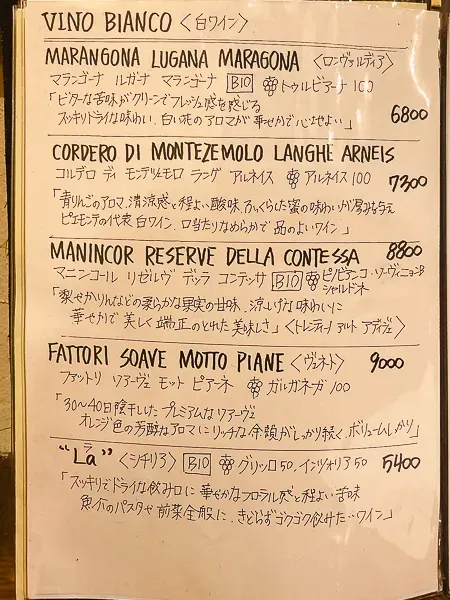 VINO BIANCO〈白ワイン〉
MARANGONA LUGANA MARAGONA 〈ロンヴァルディア〉
マランゴーナ ルガーナ マランゴーナ BIO トゥルビアーナ 100
「ビターな苦味がクリーンでフレッシュ感を感じる
スッキリドライな味わい、白い花のアロマが華やかで心地よい」 6800
CORDERO DI MONTEZEMOLO LANGHE ARNEIS
コルデロ ディ モンテツェモロ ランゲ アルネイス アルネイス100 7300
「青りんごのアロマ、清涼感と程よい酸味、ふくらした蜜の味わいが厚みを与え
ピエモンテの代表白ワイン、口当たりなめらかで品のよいワイン」
MANINCOR RESERVE DELLA CONTESSA 8800
マニンコール リゼルヴ デッラ コンテッサ BIO ピノビアンコ・ソーヴィニョンB
シャルドネ
「梨やかりんなどの柔らかな果実の甘味、涼しげな味わいに
華やかで美しく端正のとれた美味しさ」〈トレンティーノ アルト アディジェ〉
FATTORI SOAVE MOTTO PIANE〈ヴェネト〉 9000
ファットリ ソアーヴェ モット ピアーネ ガルガネーガ 100
「30〜40日陰干ししたプレミアムなソアーヴェ
オレンジ色の芳醇なアロマにリッチな余韻がしっかり続く、ボリュームしっかり」
ラ
"La"〈シチリア〉 BIO グリッロ50、インツォリア50 5400
「スッキリでドライな飲み口に華やかなフローラル感と程よい苦味
魚介のパスタや前菜全般に、きどらずゴクゴク飲みた…ワイン」